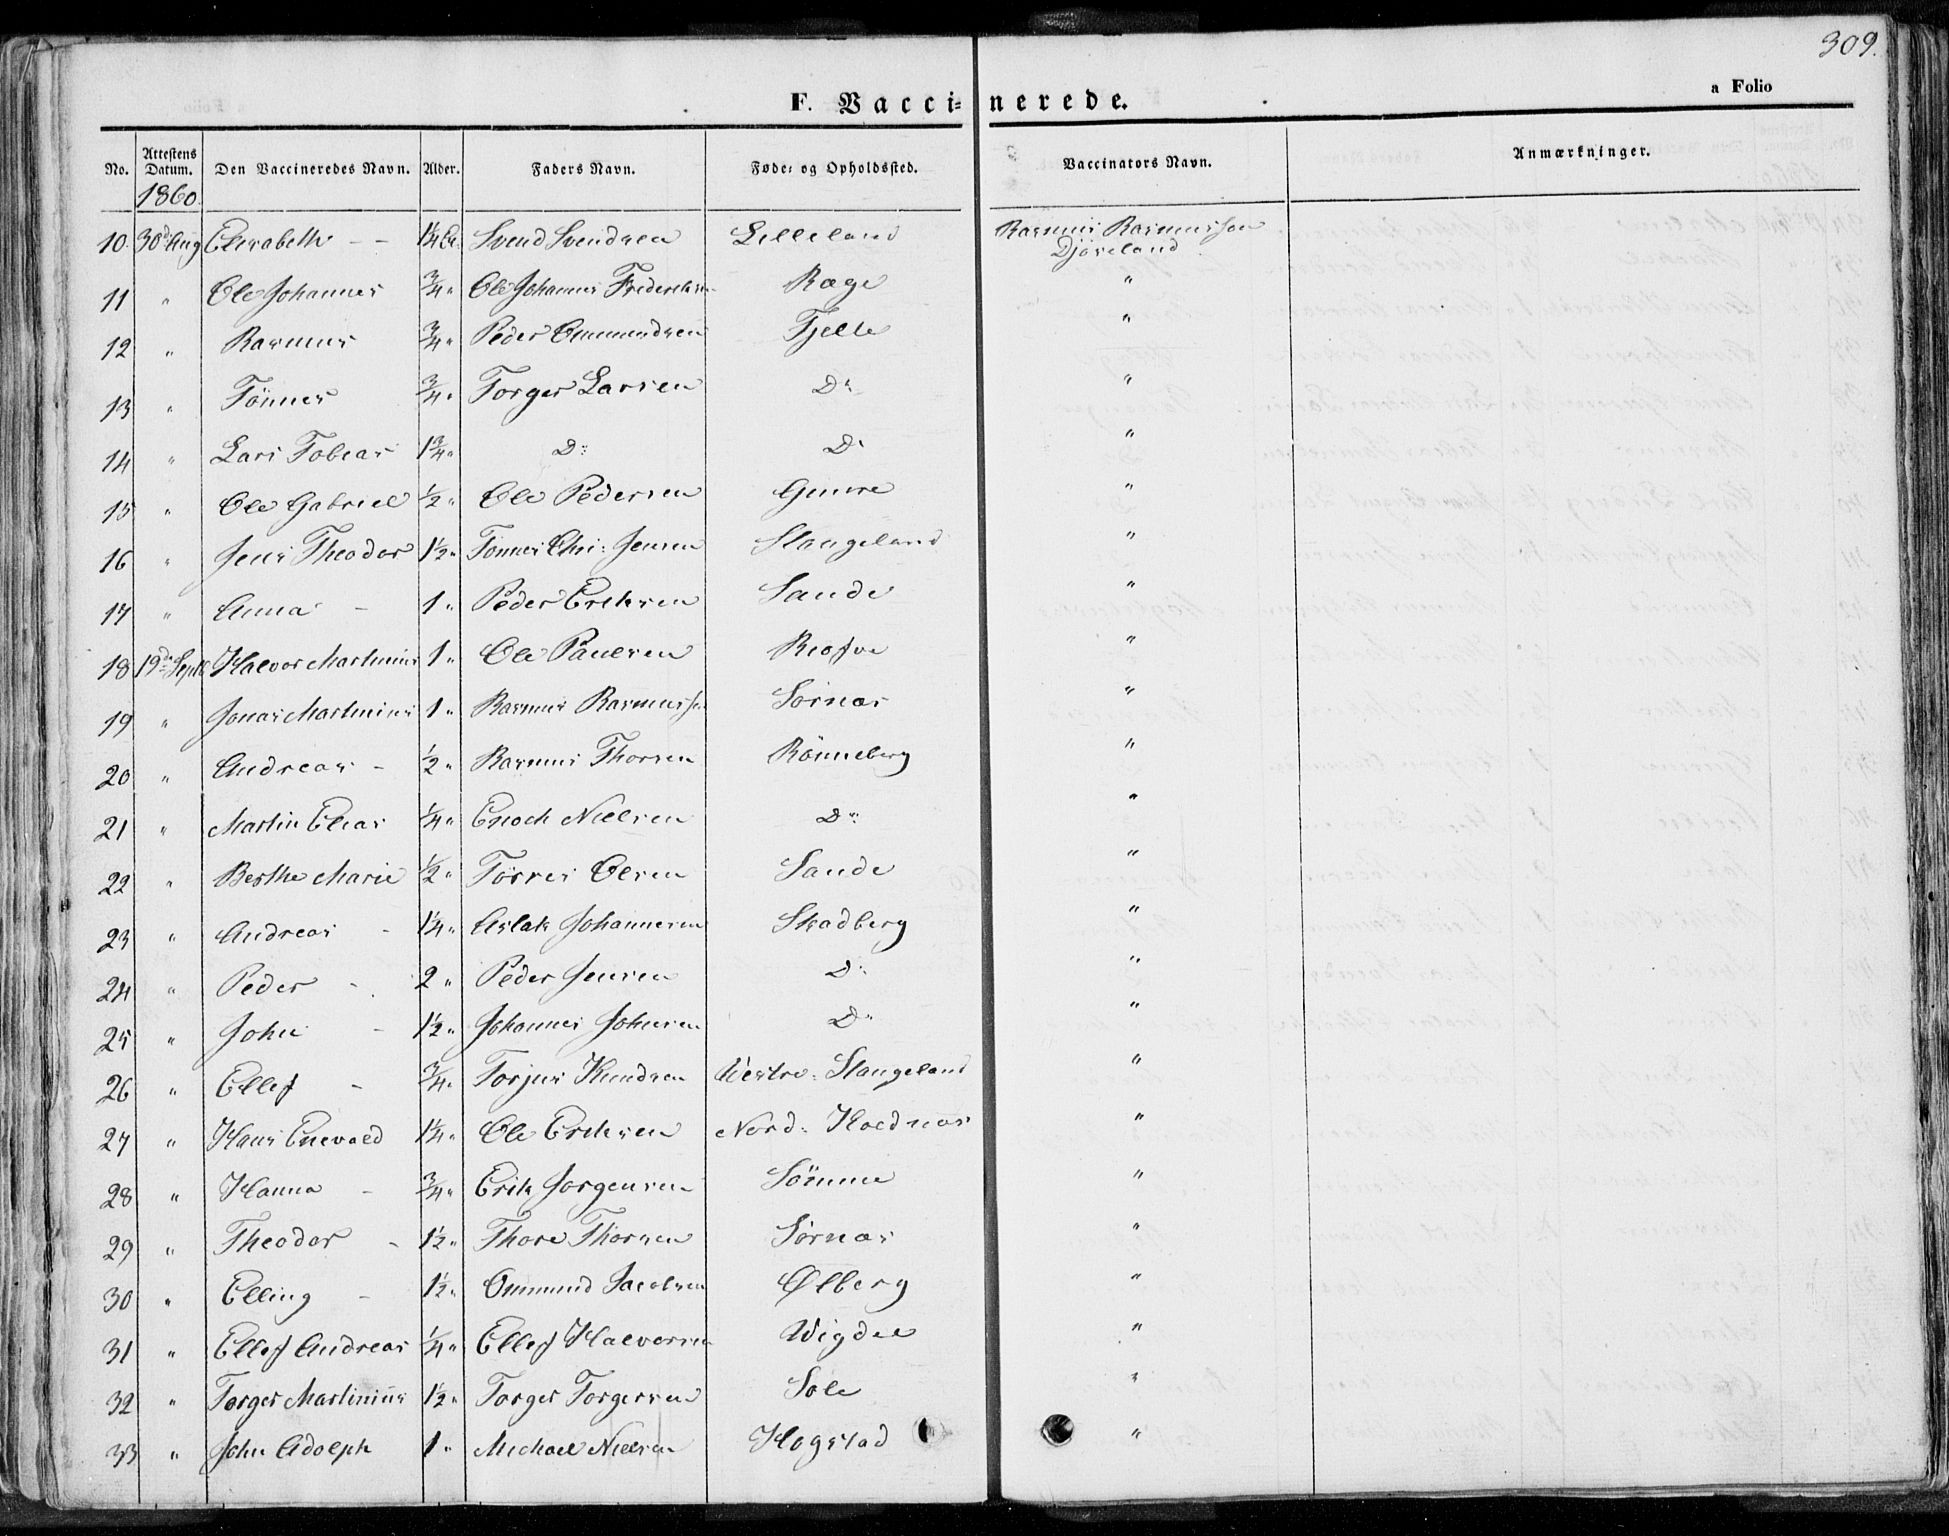 309.
F. Vacci= nerede.
a Folio
No. Attestens Datum. Den Vaccineredes Navn. Alder. Faders Navn. Føde= og Opholdssted. Vaccinators Navn. Anmærkninger.
1860.
10 30d Aug Elisabeth - - 1¼ Svend Svendsen Lilleland Rasmus Rasmussen
Djøseland
11 " Ole Johannes ¾ " Ole Johannes Frederiksen Ræge "
12 " Rasmus ¾ " Peder Ommundsen Tjelle "
13 " Tönnes ¾ " Torger Larsen D: "
14 " Lars Tobias 1¾ " D: D: "
15 " Ole Gabriel ½ " Ole Pedersen Gimre "
16 " Jens Theodor 1½ " Tönnes Chr: Jensen Stangeland "
17 " Anna - 1 " Peder Eriksen Sande "
18 19de Septb Halvor Martinius 1 " Ole Paulsen "
19 " Jonas Martinius 1 " Rasmus Rasmussen Sörnæs "
20 " Andreas - ½ " Rasmus Thorsen Rönneberg "
21 " Martin Elias ¼ " Enoch Nielsen D: "
22 " Berthe Marie ½ " Törres Olsen Sande "
23 " Andreas - 1¼ " Aslak Johannesen Skadberg "
24 " Peder - 2 " Peder Jensen D: "
25 " John - 1½ " Johannes Johnsen D: "
26 " Ellef - ¾ " Torjus Knudsen Westre: Stangeland "
27 " Hans Enevald 1¼ " Ole Eriksen Nord: Kolnæs "
28 " Hanna - ¾ " Erik Jorgensen Sömme "
29 " Theodor - 1½ " Thore Thorsen Sörnæs "
30 " Elling - 1½ " Ommund Jacobsen Ølberg "
31 " Ellef Andreas ¼ " Ellef Halvorsen Wigdel "
32 " Torger Martinius 1½ " Torger Torgersen Sole "
33 " John Adolph 1 " Michael Nielsen Hogstad "